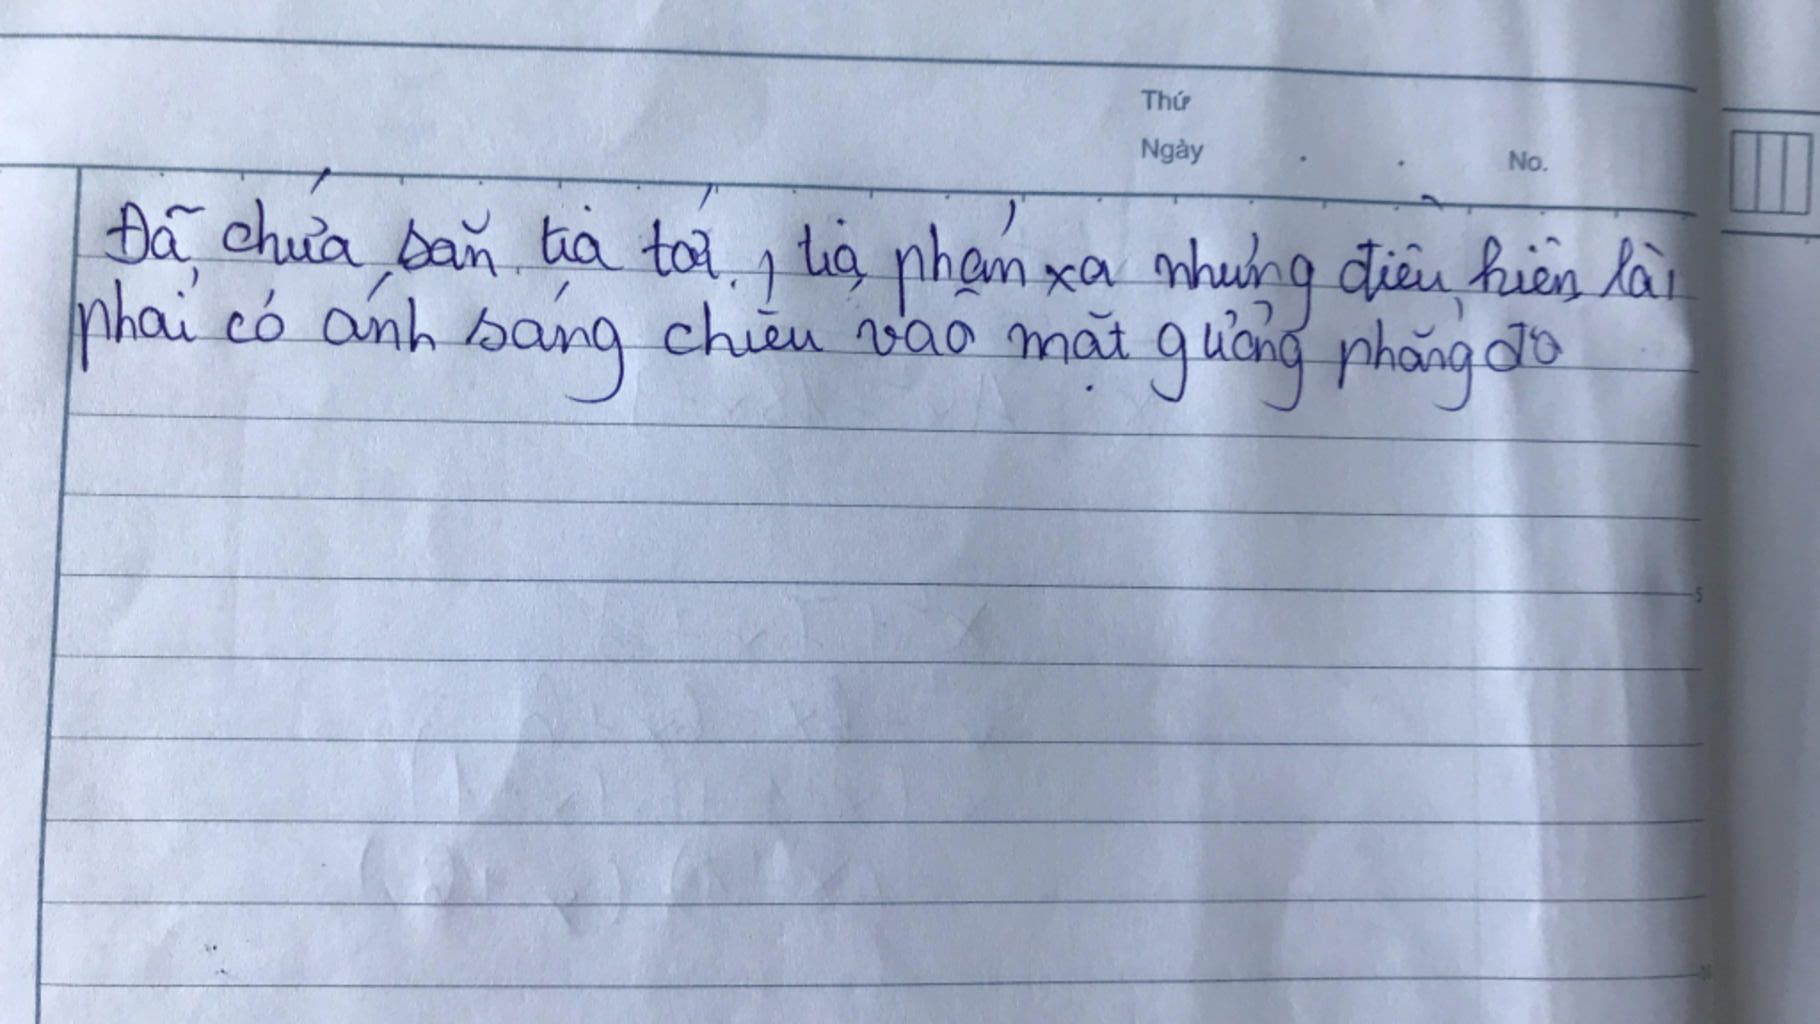 Thứ
Ngày . . No.
Đã chứa sẵn tia tới, tia phản xạ nhưng điều kiện là
phải có ánh sáng chiếu vào mặt gương phẳng đó
5
10